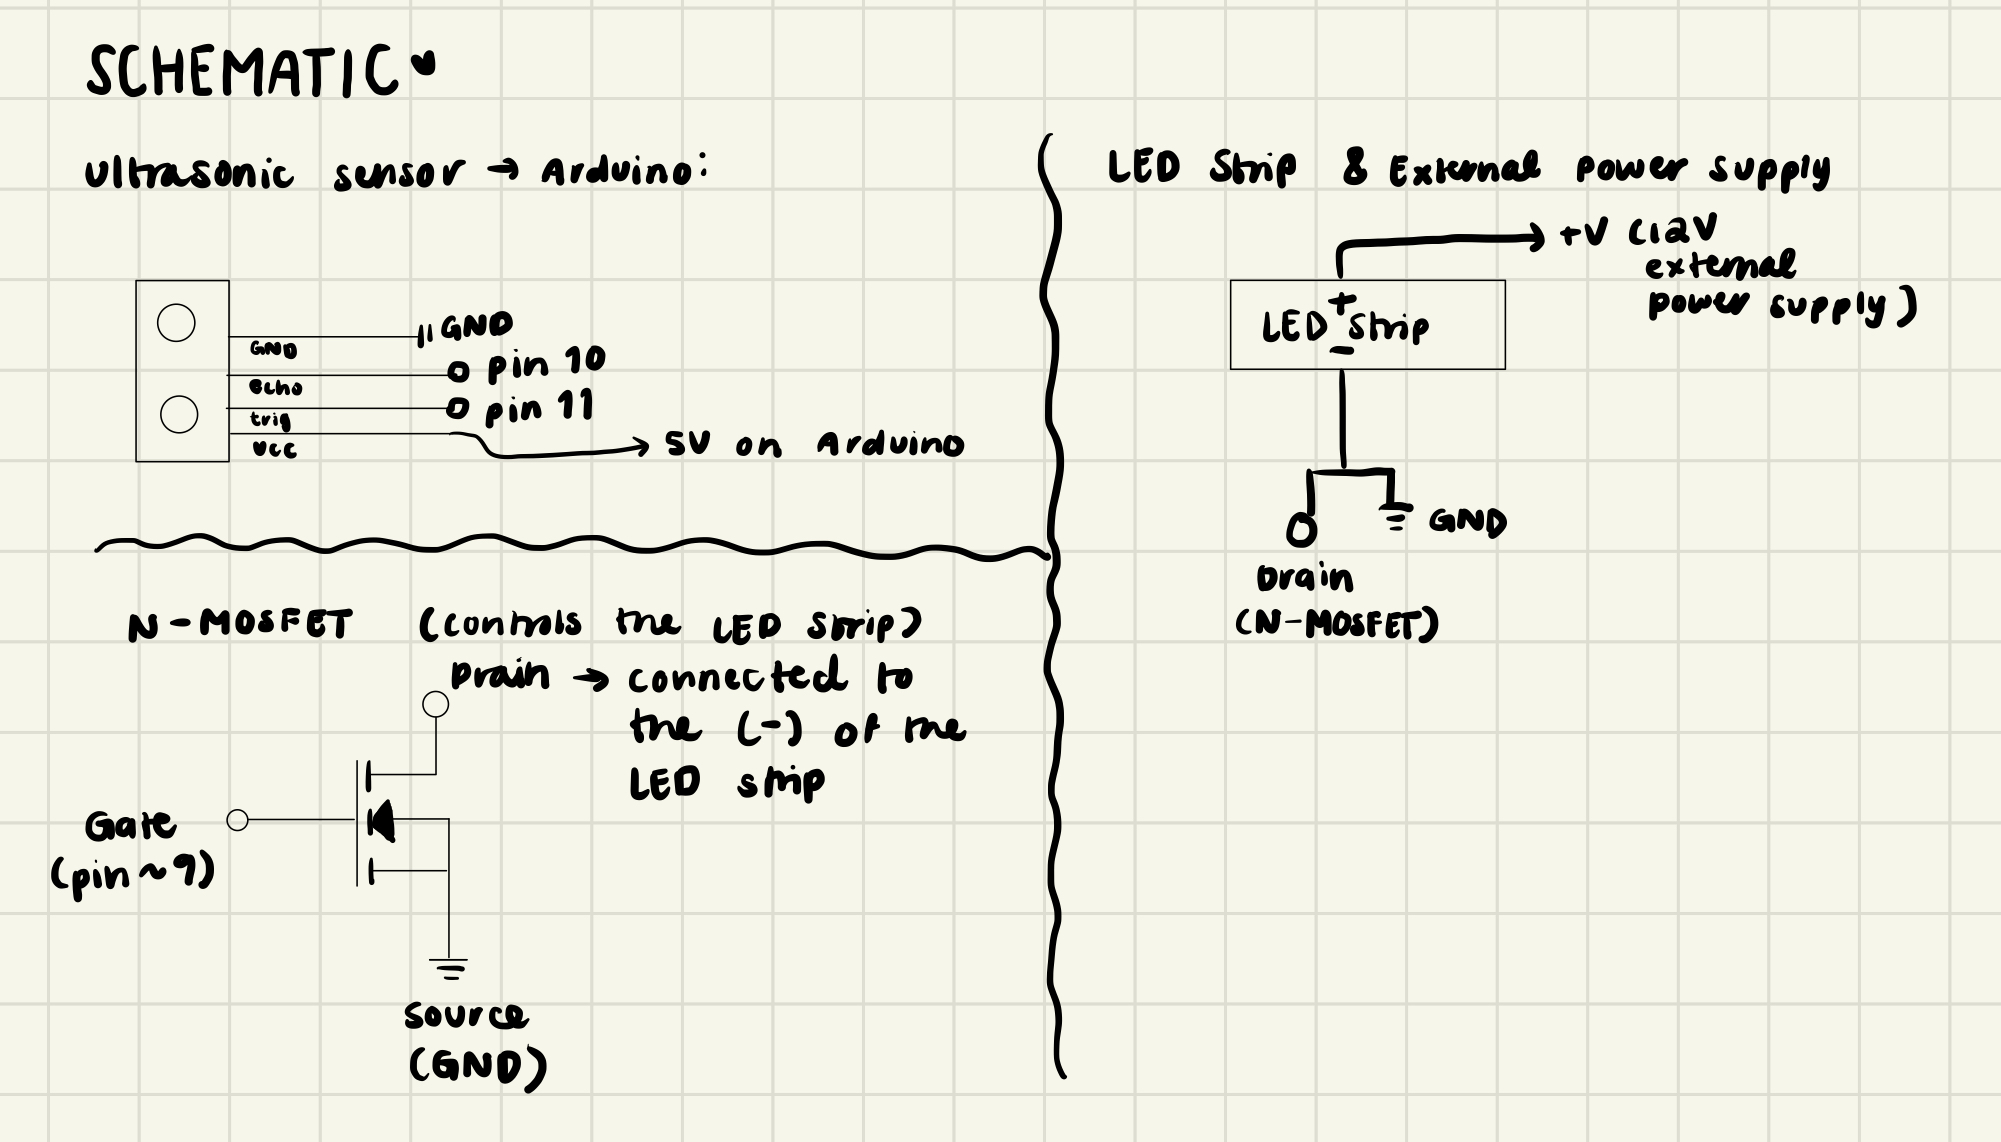 SCHEMATIC
ultrasonic sensor → Arduino:
GND
GND
echo
pin 10
trig
pin 11
vcc
5V on Arduino
N-MOSFET (controls the LED strip)
Drain → connected to
the (-) of the
LED strip
Gate
(pin ~9)
source
(GND)
LED Strip & External power supply
+V (12V
external
power supply)
+
LED strip
-
GND
Drain
(N-MOSFET)